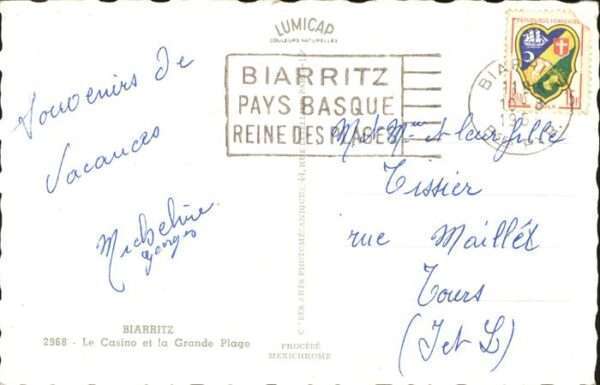 LUMICAP
COULEURS NATURELLES
BIARRITZ
PAYS BASQUE
REINE DES PLAGES
RÉPUBLIQUE FRANÇAISE
BIARRITZ
Souvenirs de
Vacances
Micheline
Georges
M. et Mme et leur fille
Tissier
rue Maillét
Tours
(I et L)
BIARRITZ
2968 - Le Casino et la Grande Plage
PROCÉDÉ
MEXICHROME